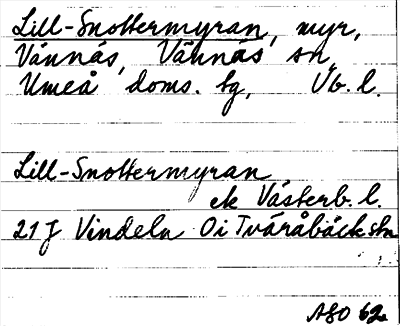 Lill-Snottermyran, myr,
Vännäs, Vännäs sn,
Umeå doms. tg, Vb. l.
Lill-Snottermyran
ek Västerb. l.
21 J Vindeln 0 i Tväråbäck stn
ASO 62